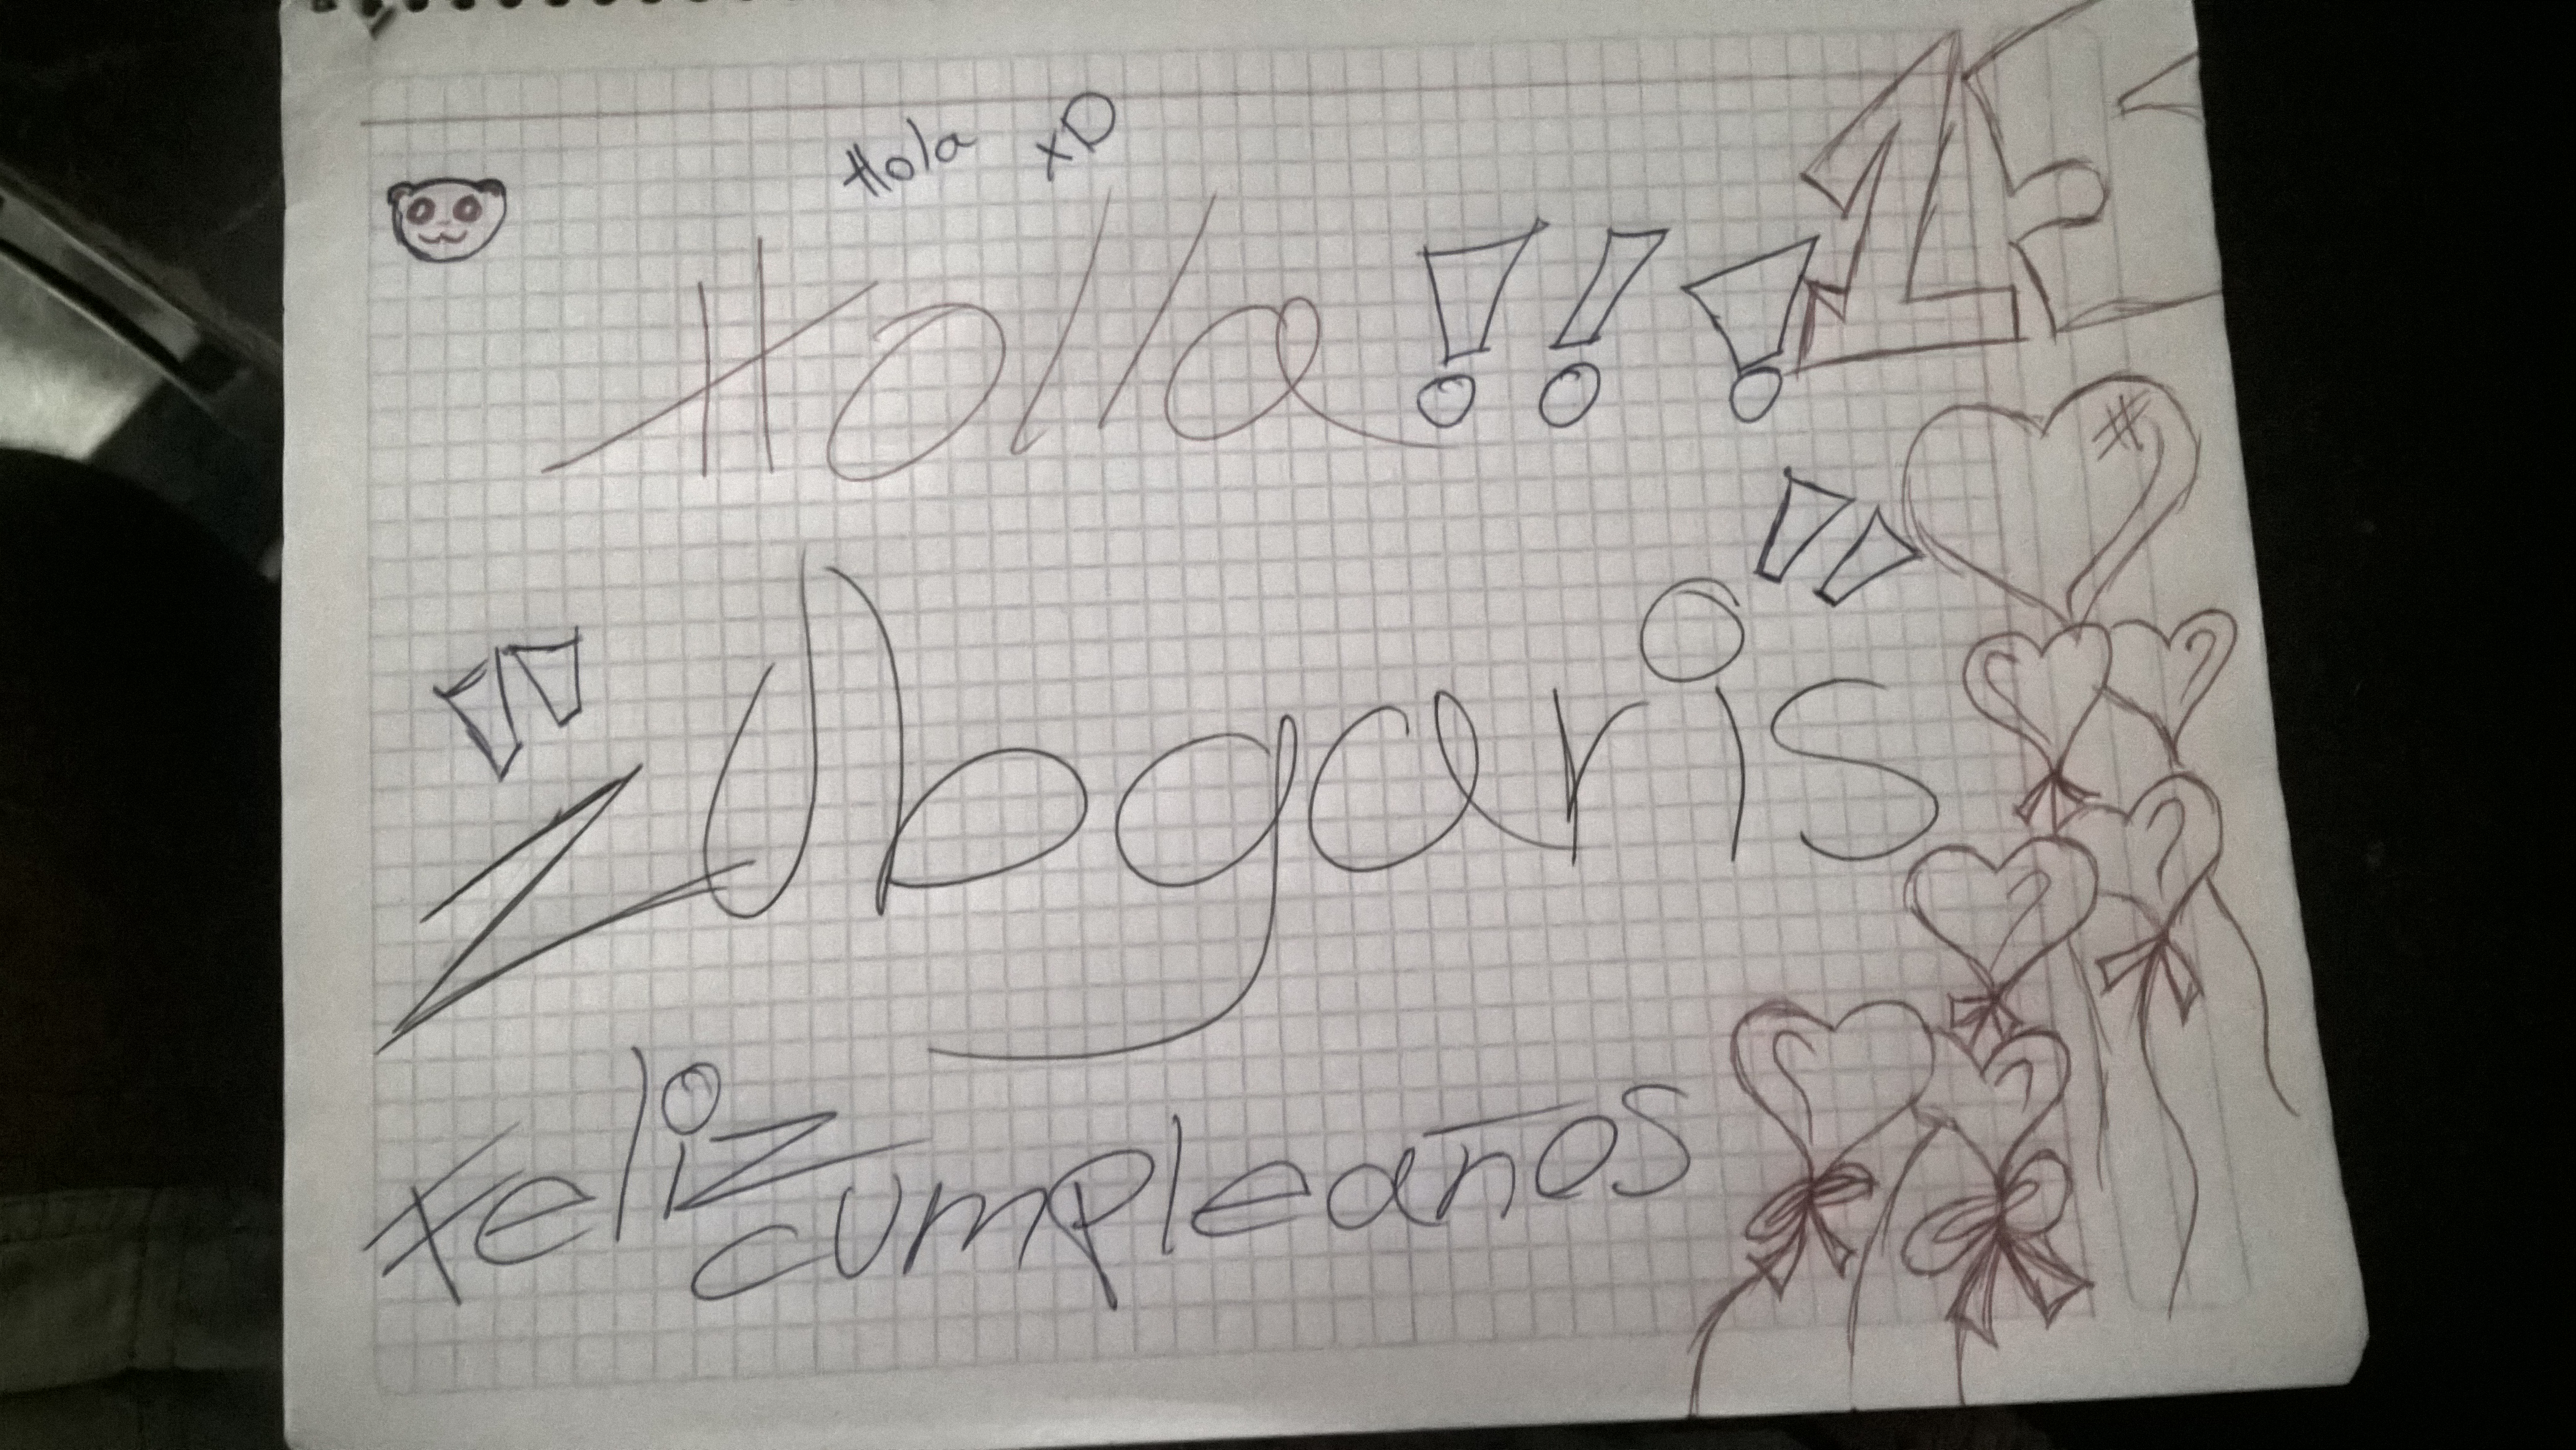 Hola xD
Holla!!!
"Zubgaris"
Feliz
cumpleaños